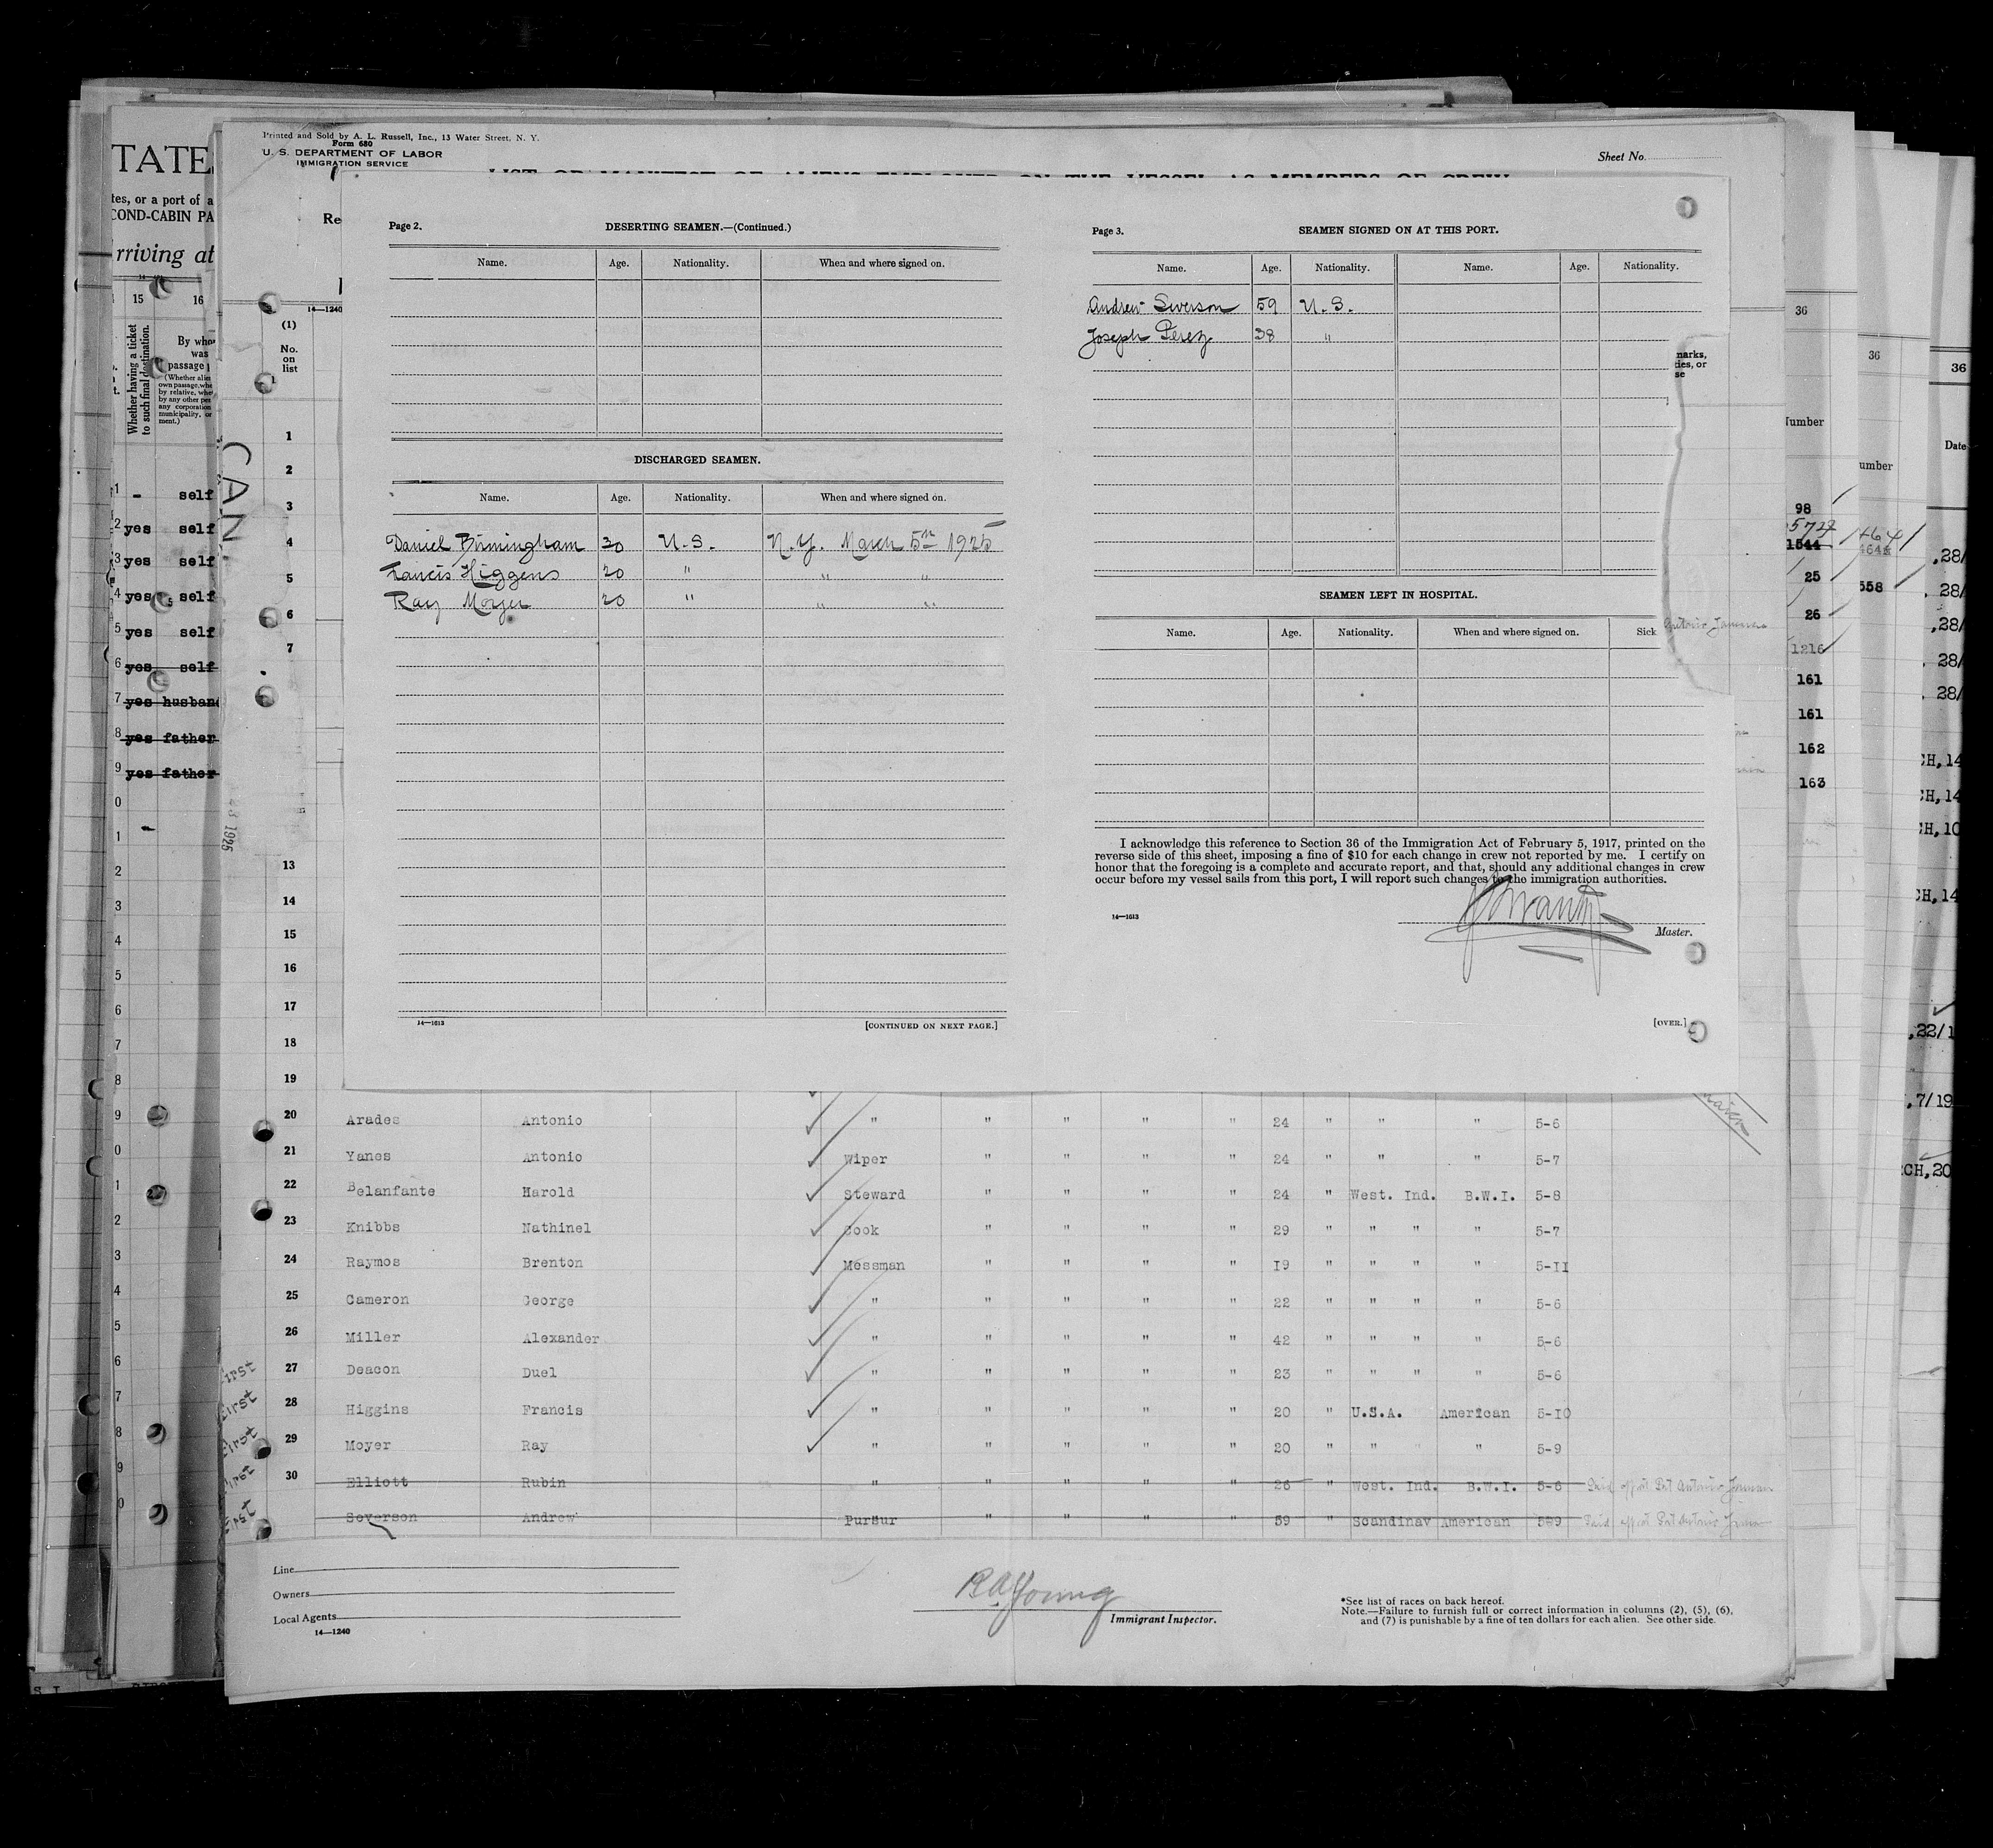 Printed and Sold by A. L. Russell, Inc., 13 Water Street, N. Y.
Form 680
U. S. DEPARTMENT OF LABOR
IMMIGRATION SERVICE
Sheet No.
LIST OR MANIFEST OF ALIENS EMPLOYED ON THE VESSEL AS MEMBERS OF CREW
TATE
tes, or a port of a
COND-CABIN PA
rriving at
15 16
Whether having a ticket to such final destination.
By who
was
passage
(Whether alie
own passage, whe
by relative, whet
by any other per
any corporation
municipality, or
ment.)
1 - self
2 yes self
3 yes self
4 yes self
5 yes self
6 yes self
7 yes husban
8 yes father
9 yes father
CAN.
1925
Re
14—1240
(1)
No.
on
list
1
2
3
4
5
6
7
13
14
15
16
17
18
19
Page 2.
DESERTING SEAMEN.—(Continued.)
Name. Age. Nationality. When and where signed on.
DISCHARGED SEAMEN.
Name. Age. Nationality. When and where signed on.
Daniel Birmingham 30 U.S. N.Y. March 5th 1925
Francis Higgens 20 " " "
Ray Moyer 20 " " "
14—1613
[CONTINUED ON NEXT PAGE.]
Page 3.
SEAMEN SIGNED ON AT THIS PORT.
Name. Age. Nationality. Name. Age. Nationality.
Andrew Siverson 59 U.S.
Joseph Perez 38 "
SEAMEN LEFT IN HOSPITAL.
Name. Age. Nationality. When and where signed on. Sick
I acknowledge this reference to Section 36 of the Immigration Act of February 5, 1917, printed on the
reverse side of this sheet, imposing a fine of $10 for each change in crew not reported by me. I certify on
honor that the foregoing is a complete and accurate report, and that, should any additional changes in crew
occur before my vessel sails from this port, I will report such changes to the immigration authorities.
14—1613
Master.
[OVER.]
marks,
ties, or
se
36
Number
98
1544
25
26
1216
161
161
162
163
36
umber
558
36
Date
,28/
, 28/
,28/
, 28/
, 28/
CH,14
CH,14
CH,10
CH,14
,22/1
,7/19
CH,20
20 Arades Antonio " " " " " 24 " " " 5-6
21 Yanes Antonio Wiper " " " " 24 " " " 5-7
22 Belanfante Harold Steward " " " " 24 " West. Ind. B.W.I. 5-8
23 Knibbs Nathinel Cook " " " " 29 " " " " 5-7
24 Raymos Brenton Messman " " " " 19 " " " " 5-11
25 Cameron George " " " " " 22 " " " " 5-6
26 Miller Alexander " " " " " 42 " " " " 5-6
27 Deacon Duel " " " " " 23 " " " " 5-6
28 Higgins Francis " " " " " 20 " U.S.A. American 5-10
29 Moyer Ray " " " " " 20 " " " 5-9
30 Elliott Rubin " " " " " 26 " West. Ind. B.W.I. 5-6 Paid off at Port Antonio Jamaica
Severson Andrew Pursur " " " " 59 " Scandinav American 5-9 Paid off at Port Antonio Jamaica
First
First
First
First
First
Line
Owners
Local Agents
14—1240
R A Young
Immigrant Inspector.
*See list of races on back hereof.
Note.—Failure to furnish full or correct information in columns (2), (5), (6),
and (7) is punishable by a fine of ten dollars for each alien. See other side.